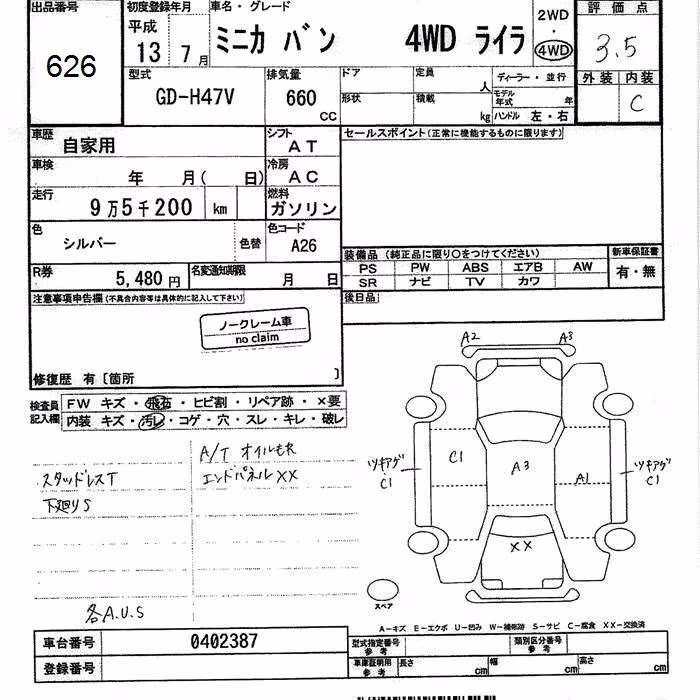 出品番号
626
初度登録年月
平成
13 7月
車名・グレード
ミニカ バン 4WD ライラ
2WD
・
4WD
評価点
3.5
外装 内装
C
型式
GD-H47V
排気量
660
CC
ドア
定員
人
形状
積載
kg
ディーラー・並行
モデル年式
年
ハンドル 左・右
車歴
自家用
シフト
AT
セールスポイント(正常に機能するものに限ります)
車検
年 月( 日)
冷房
AC
走行
9万5千200 km
燃料
ガソリン
色
シルバー
色替
色コード
A26
装備品(純正品に限り○をつけてください)
新車保証書
PS PW ABS エアB AW
有・無
SR ナビ TV カワ
R券
5,480円
名変通知期限
月 日
後日品
注意事項申告欄(不具合内容等は具体的に記入して下さい)
ノークレーム車
no claim
修復歴 有〔箇所 〕
検査員
記入欄
FW キズ・飛石・ヒビ割・リペア跡・×要
内装 キズ・汚レ・コゲ・穴・スレ・キレ・破レ
A/T オイルモレ
スタッドレスT
エンドパネルXX
下廻りS
各A.U.S
A2
A3
ツキアゲ
C1
C1
A3
A1
ツキアゲ
C1
XX
スペア
A-キズ E-エクボ U-凹み W-補修跡 S-サビ C-腐食 XX-交換済
車台番号
0402387
型式指定番号
参考
類別区分番号
参考
登録番号
車庫証明用
参考
長さ
cm
幅
cm
高さ
cm